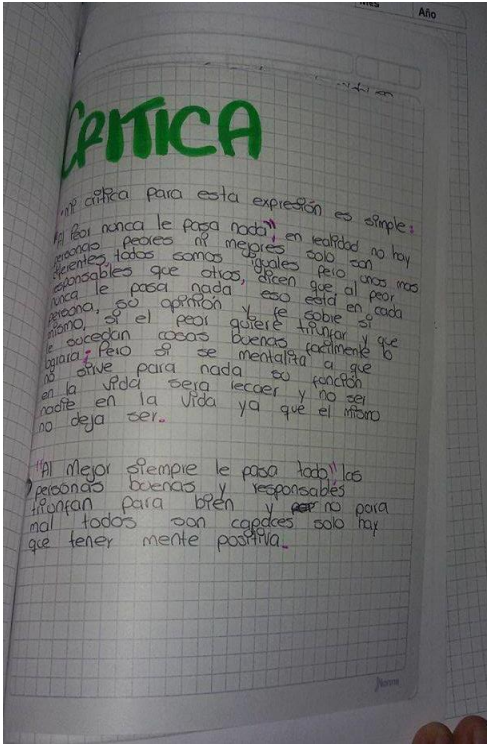 Año
CRITICA
mi critica para esta expresión es simple:
"Al Peor nunca le pasa nada", en realidad no hay
personas peores ni mejores solo son
diferentes, todos somos iguales pero unos mas
responsables que otros, dicen que al peor
nunca le pasa nada eso está en cada
persona, su opinión y fe sobre si
mismo, si el peor quiere triunfar y que
le sucedan cosas buenas facilmente lo
lograra; Pero si se mentaliza a que
no sirve para nada su función
en la vida sera lecaer y no ser
nadie en la vida ya que el mismo
no deja ser.
"Al Mejor siempre le pasa todo" las
personas buenas y responsables
triunfan para bien y no para
mal todos son capaces solo hay
que tener mente positiva.